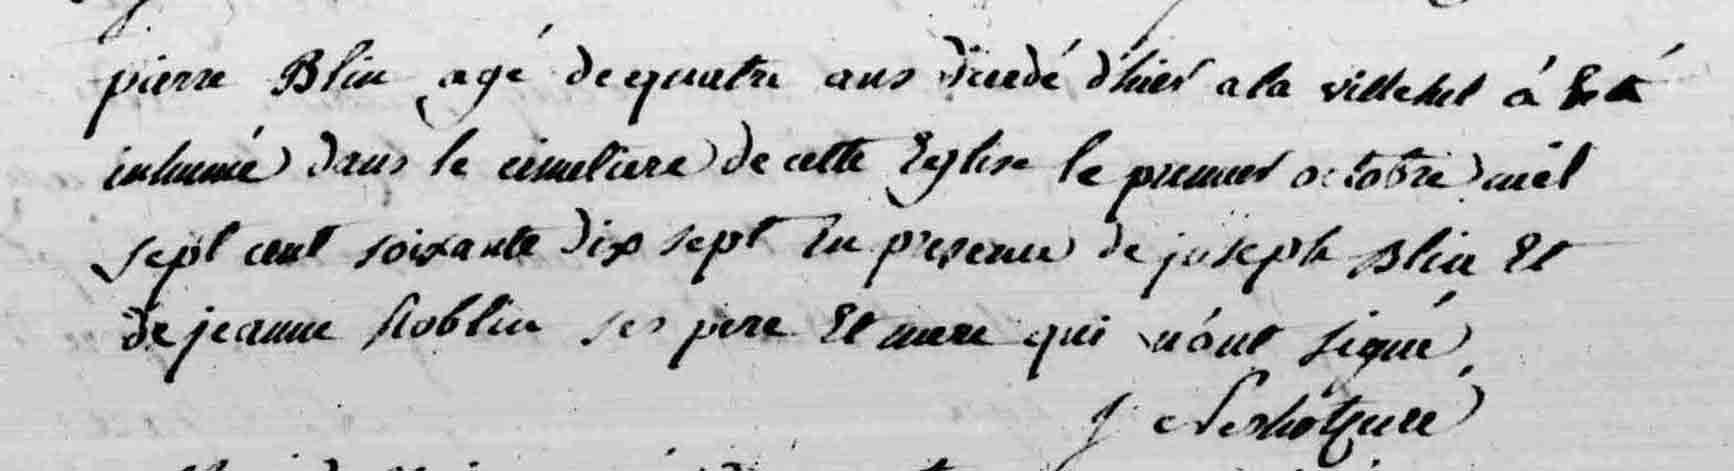 pierre Blin agé de quatre ans decedé d'hier a la villehel á Eté
inhumé dans le cimetiere de cette Eglise le premier octobre mil
sept cent soixante dix sept En presence de joseph Blin Et
de jeanne hoblin ses pere Et mere qui n'ont signé
J